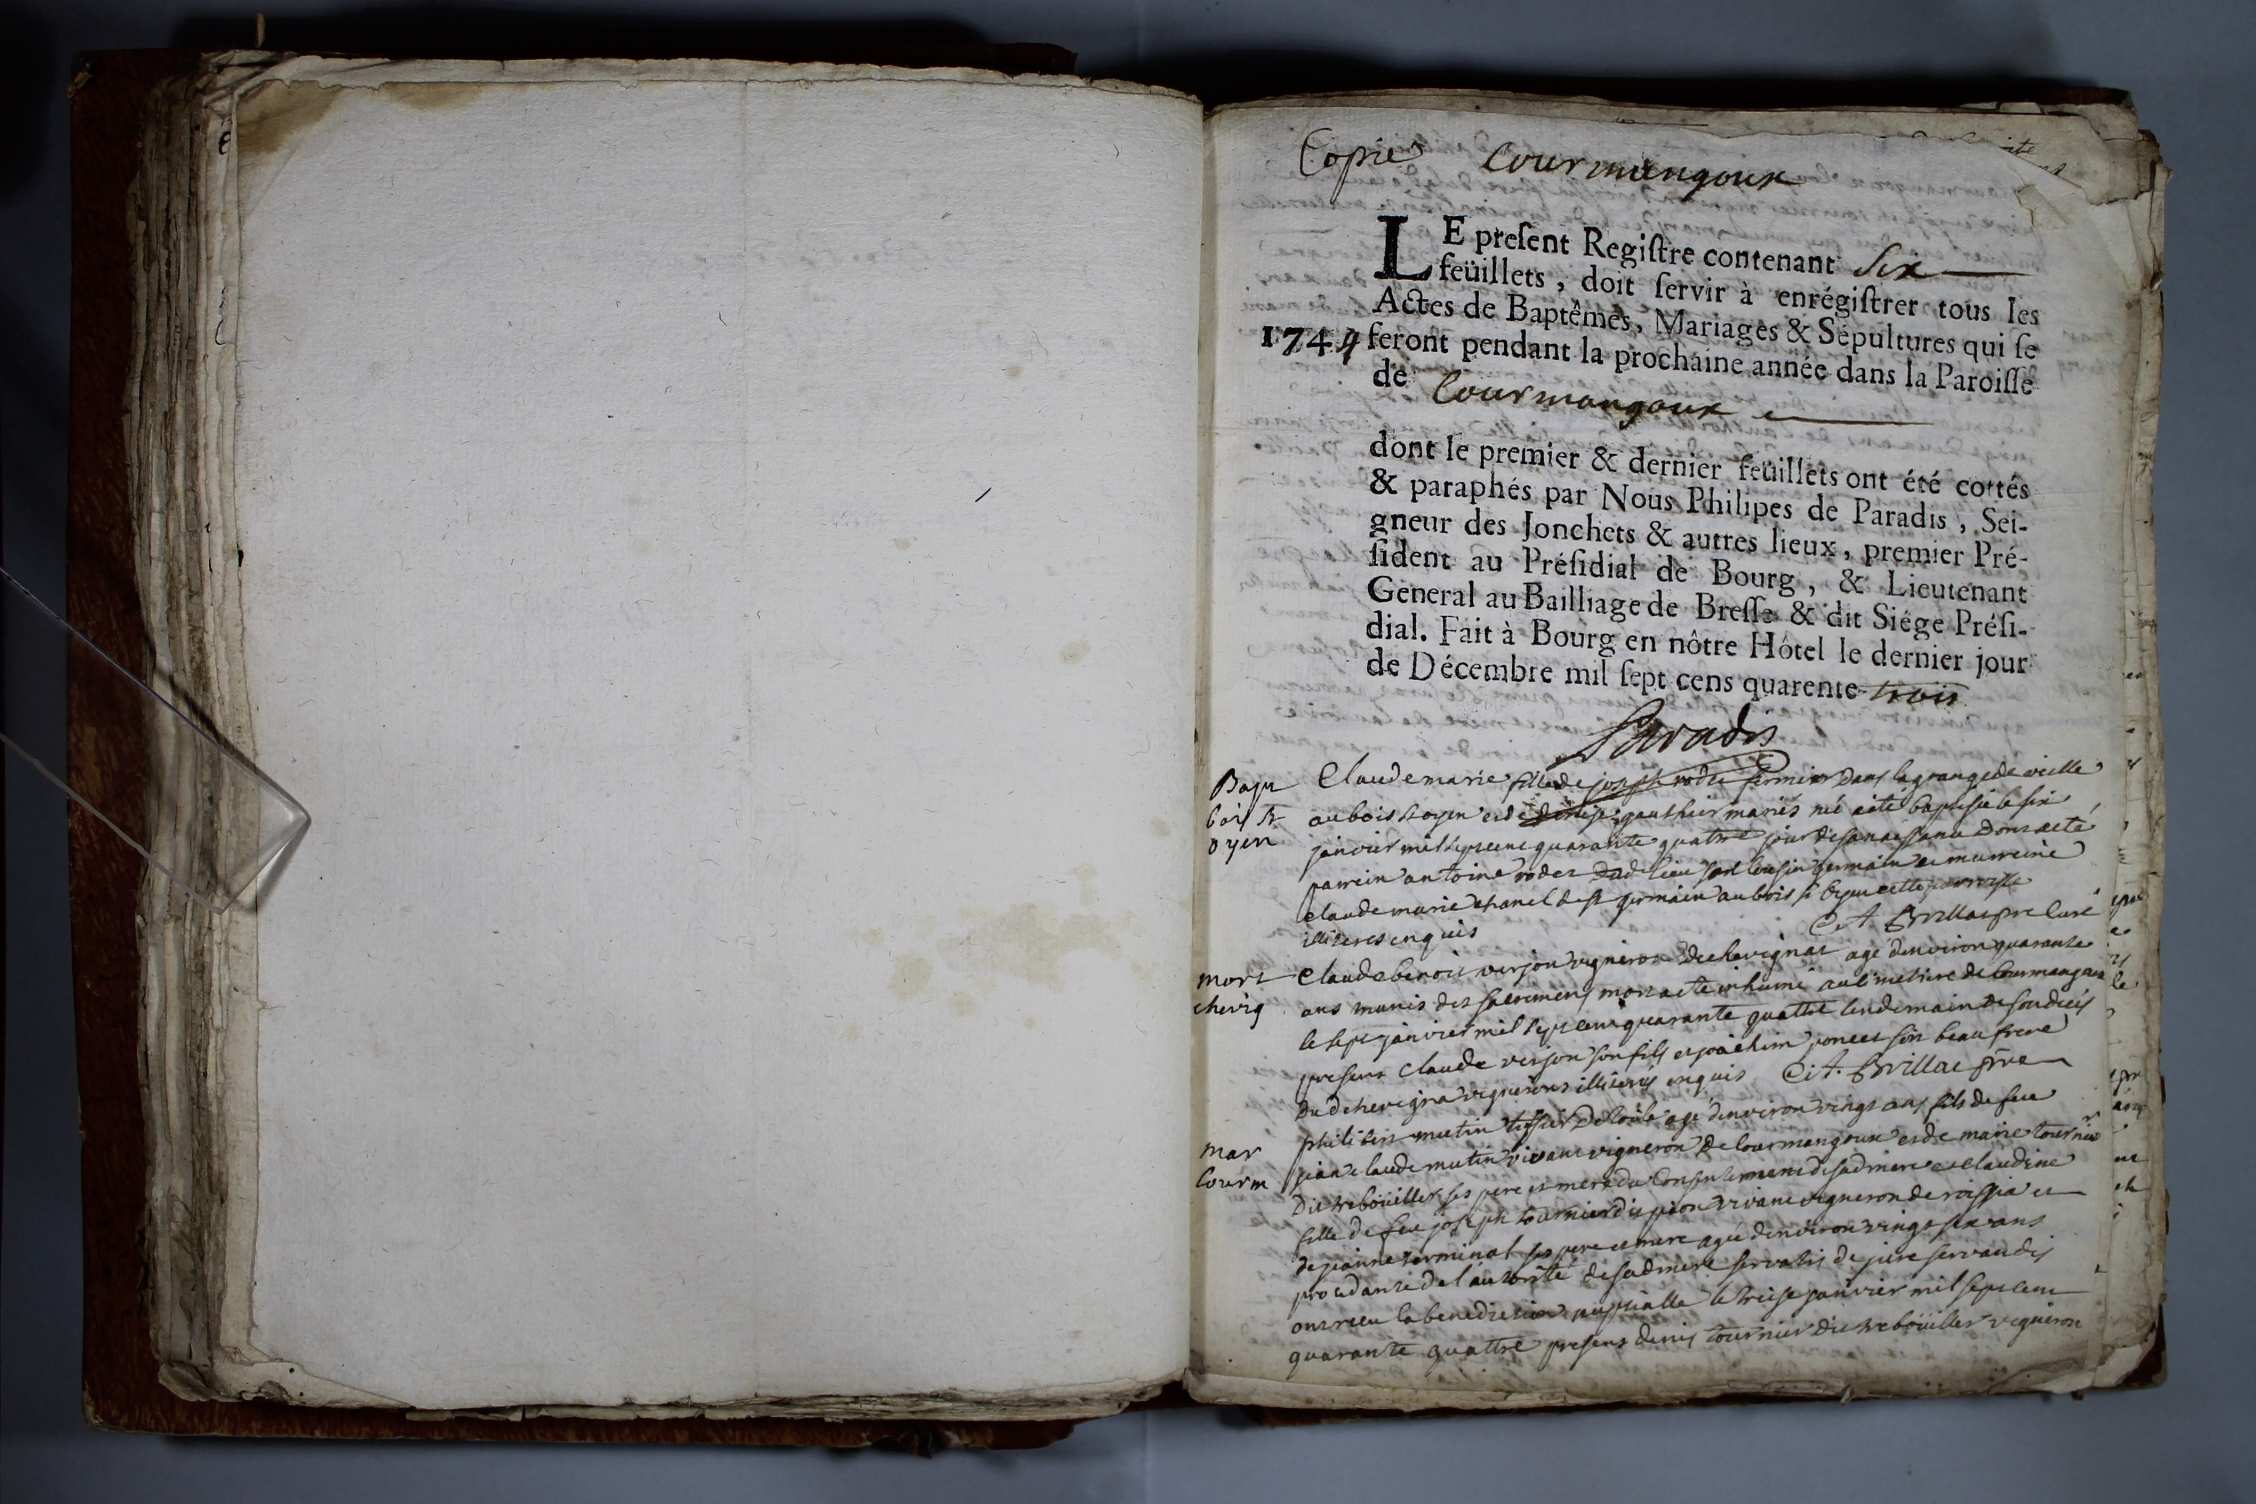 Copie Courmangoux
LE preſent Regiſtre contenant Six
feüillets, doit ſervir à enrégiſtrer tous les
Actes de Baptêmes, Mariages & Sépultures qui ſe
1744 feront pendant la prochaine année dans la Paroiſſe
de Courmangoux
dont le premier & dernier feüillets ont été cottés
& paraphés par Nous Philipes de Paradis, Sei-
gneur des Jonchets & autres lieux, premier Pré-
ſident au Préſidial de Bourg, & Lieutenant
General au Bailliage de Breſſe & dit Siége Préſi-
dial. Fait à Bourg en nôtre Hôtel le dernier jour
de Décembre mil ſept cens quarente trois
Paradis
Bapt Claudemarie fille de joseph rodet fermier dans la grange de vielle
bois st au bois st oyen et de denise gauthier mariés né a été baptisée le six
oyen janvier mil sept cent quarante quattre jour de sa naissance dont a eté
parrein antoine rodet dud lieu son cousin germain et marreine
claude marie chanel de st germain au bois st oyen cette parroisse
illiteres enquis C. A. Brillat pre Curé
mort Claude benoit verjon vigneron de chevignat agé denviron quarante
chevig ans munis des sacremens mort a eté inhumé au cimetiere de Courmangoux
le sept janvier mil sept cent quarante quattre lendemain de son décés
presens claude verjon son fils et joachim poncet son beau frere
dud chevigna vignerons illiterés enquis C. A. Brillat pre
philibert mutin tissier de toile agé denviron vingt ans fils de feu
mar jean claude mutin vivant vigneron de Courmangoux et de marie tournier
Courm dit treboüillet ses pere et mere du consentement de sadmere et claudine
fille de feu joseph tournier dit pion vivant vigneron de roissia et
de jeanne terminal ses pere et mere agée denviron vingt six ans
procedante de l'autorité de sadmere servatis de jure servandis
ont reçu la benediction nuptialle le treise janvier mil sept cent
quarante quattre presens denis tournier dit trebouillet vigneron